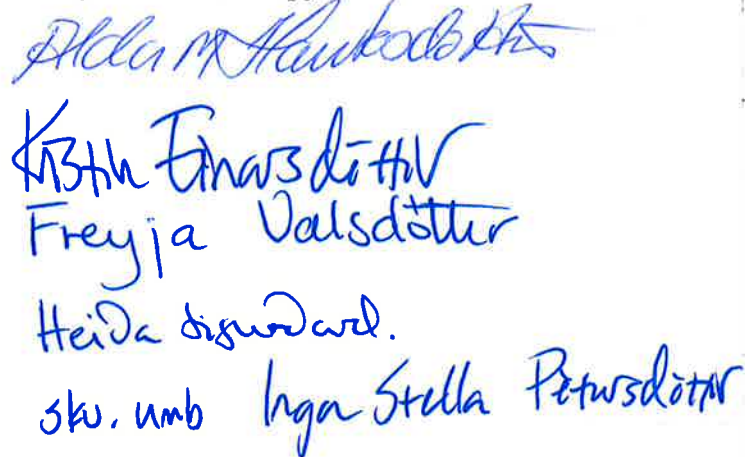 Alda M Hauksdóttir
Kristín Einarsdóttir
Freyja Valsdóttir
Heiða Sigurðard.
skv. umb Inga Stella Pétursdóttir